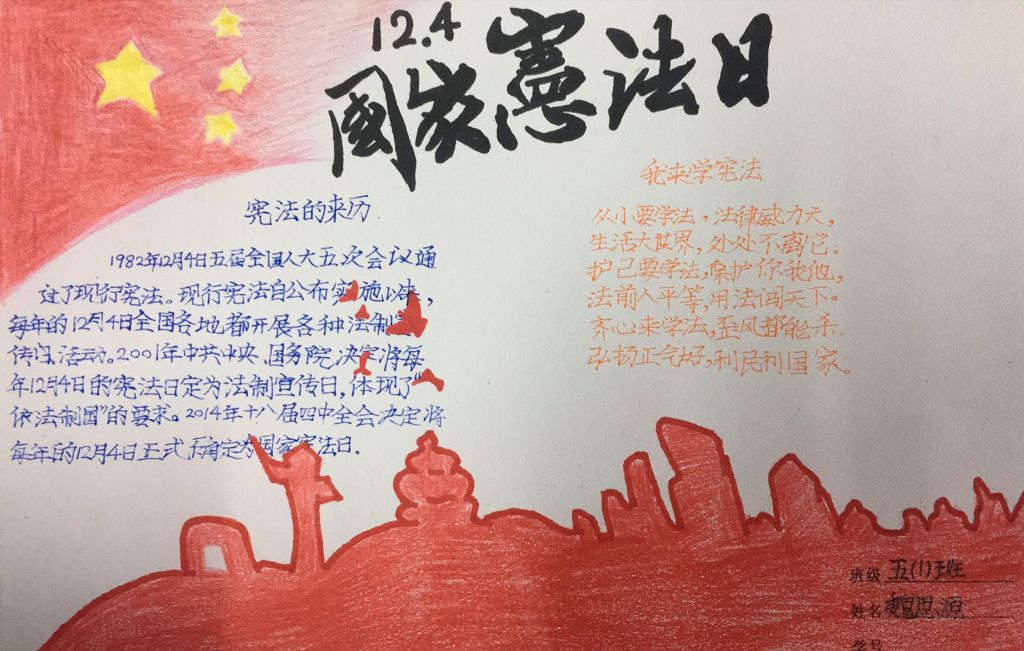 12.4
國家憲法日
宪法的来历
1982年12月4日五届全国人大五次会议通
过了现行宪法。现行宪法自公布实施以来，
每年的12月4日全国各地都开展各种法制宣
传活动。2001年中共中央、国务院，决定将每
年12月4日的宪法日定为法制宣传日，体现了“
依法制国”的要求。2014年十八届四中全会决定将
每年的12月4日正式确定为国家宪法日。
我来学宪法
从小要学法，法律威力大，
生活大世界，处处不离它。
护己要学法，保护你我他，
法前人平等，用法闯天下。
齐心来学法，歪风都能杀.
弘扬正气好，利民利国家。
班级 五(1)班
姓名 思源
学号